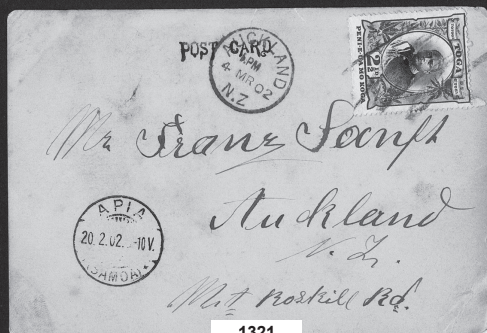 POST CARD
AUCKLAND
4 MR 02
N.Z
TOGA
2½
PENI E UA MO KOGA
Mr Franz Sanft
Auckland
N. Z.
Mt Roskill Rd.
APIA
20.2.02. -10V.
(SAMOA)
1321